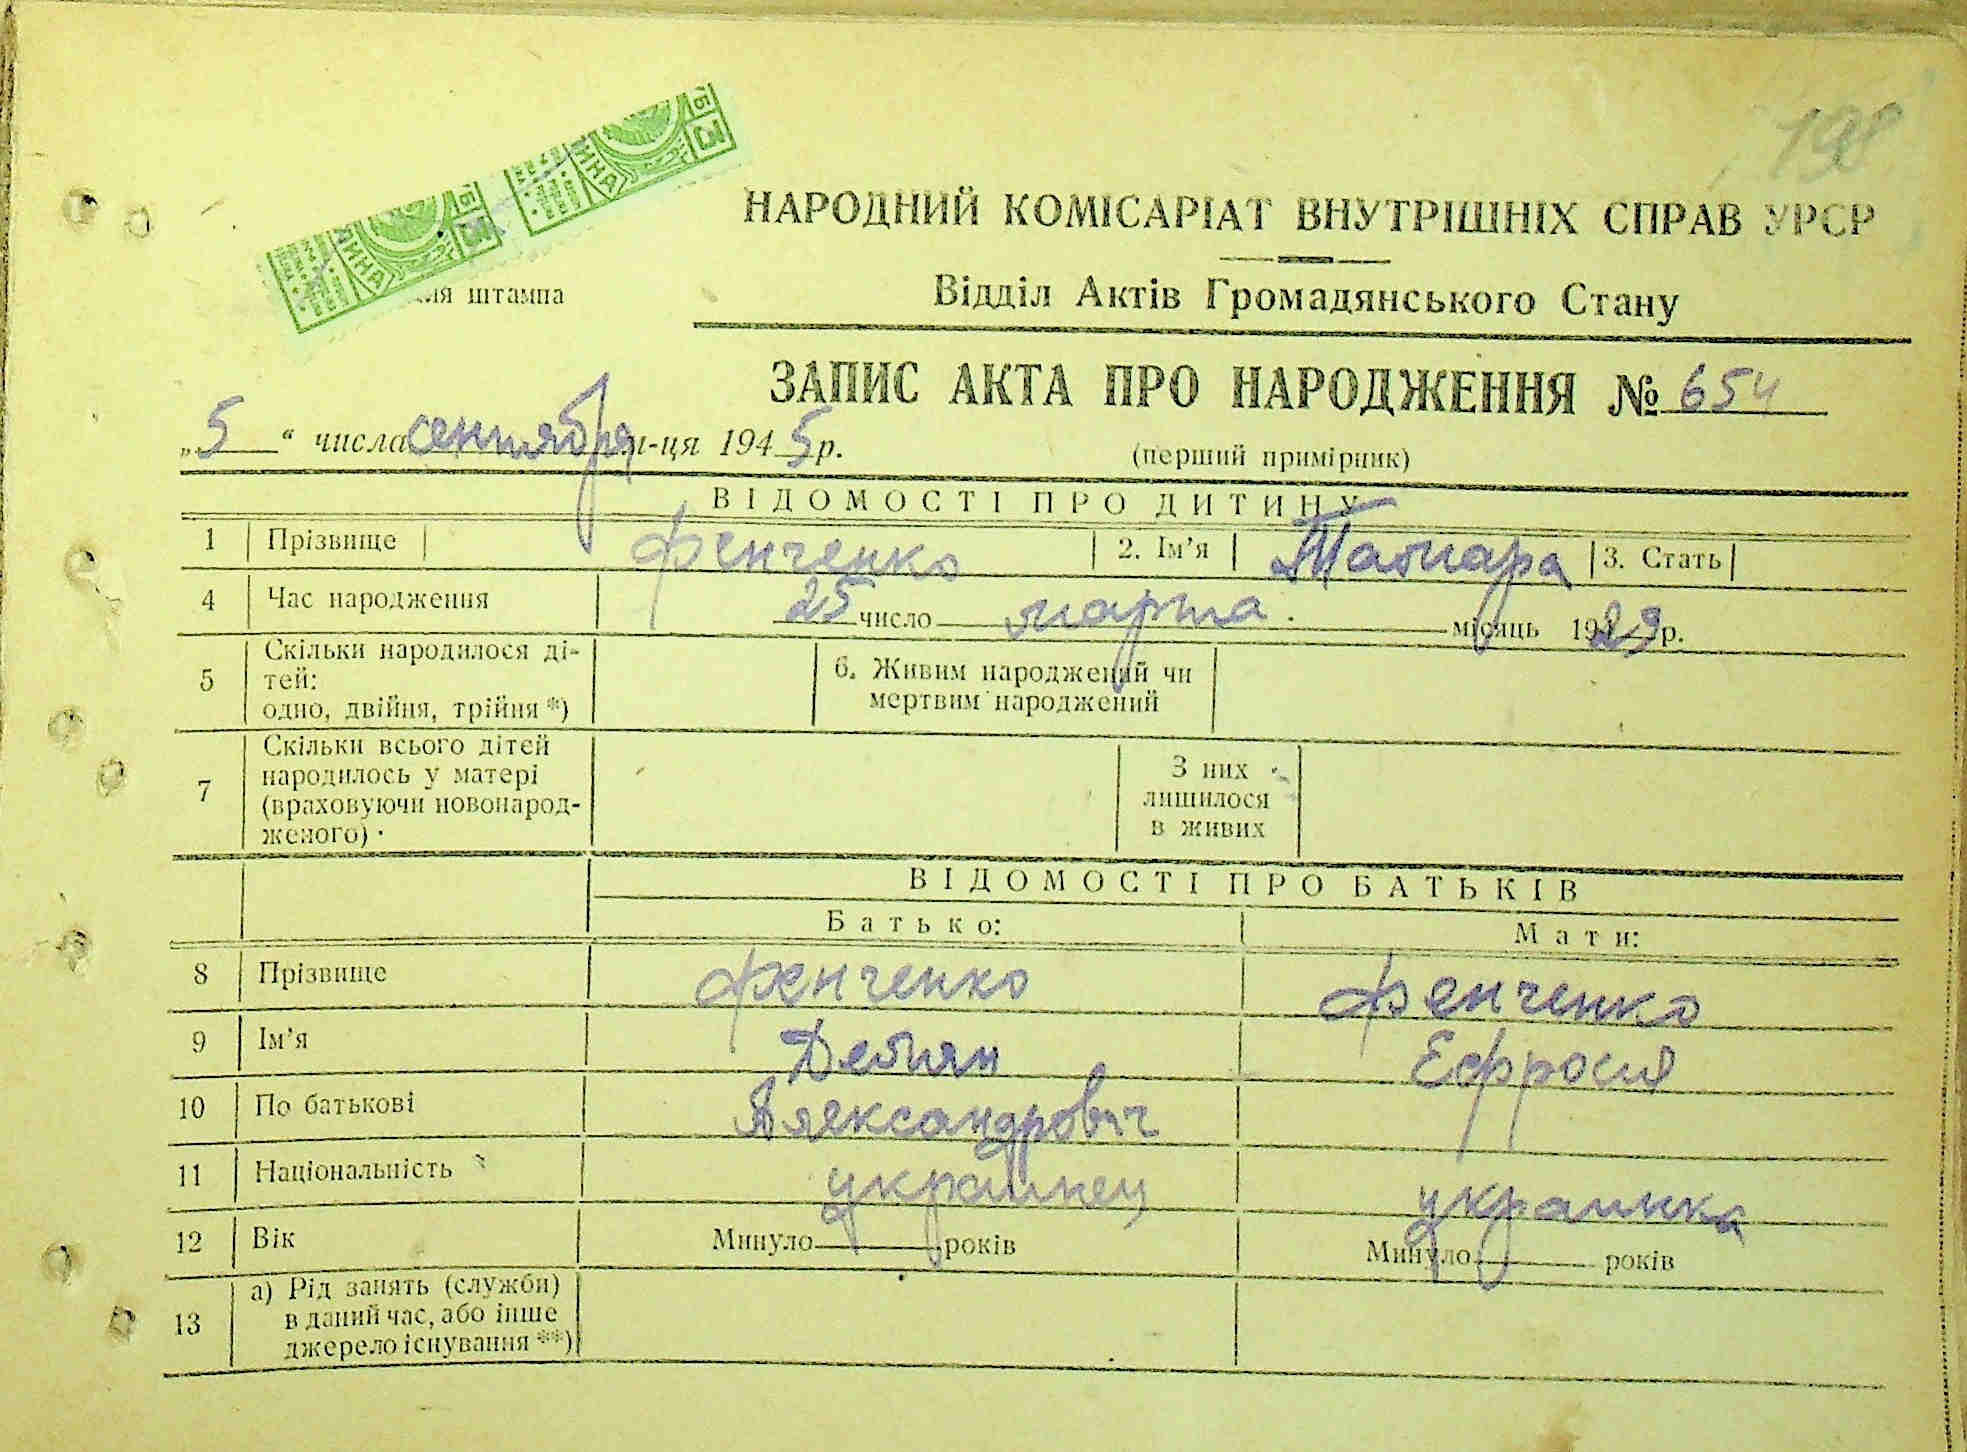 198
НАРОДНИЙ КОМІСАРІАТ ВНУТРІШНІХ СПРАВ УРСР
для штампа
Відділ Актів Громадянського Стану
ЗАПИС АКТА ПРО НАРОДЖЕННЯ № 654
„5“ числа сентября м-ця 1945 р.
(перший примірник)
ВІДОМОСТІ ПРО ДИТИНУ
1 Прізвище Фенченко 2. Ім’я Тамара 3. Стать
4 Час народження 25 число марта місяць 1929 р.
5 Скільки народилося ді-
тей:
одно, двійня, трійня *)
6. Живим народжений чи
мертвим народжений
7 Скільки всього дітей
народилось у матері
(враховуючи новонарод-
женого)
З них
лишилося
в живих
ВІДОМОСТІ ПРО БАТЬКІВ
Батько: Мати:
8 Прізвище Фенченко Фенченко
9 Ім’я Демян
10 По батькові Александрович
11 Національність украинец украинка
12 Вік Минуло років Минуло років
13 а) Рід занять (служби)
в даний час, або інше
джерело існування **)